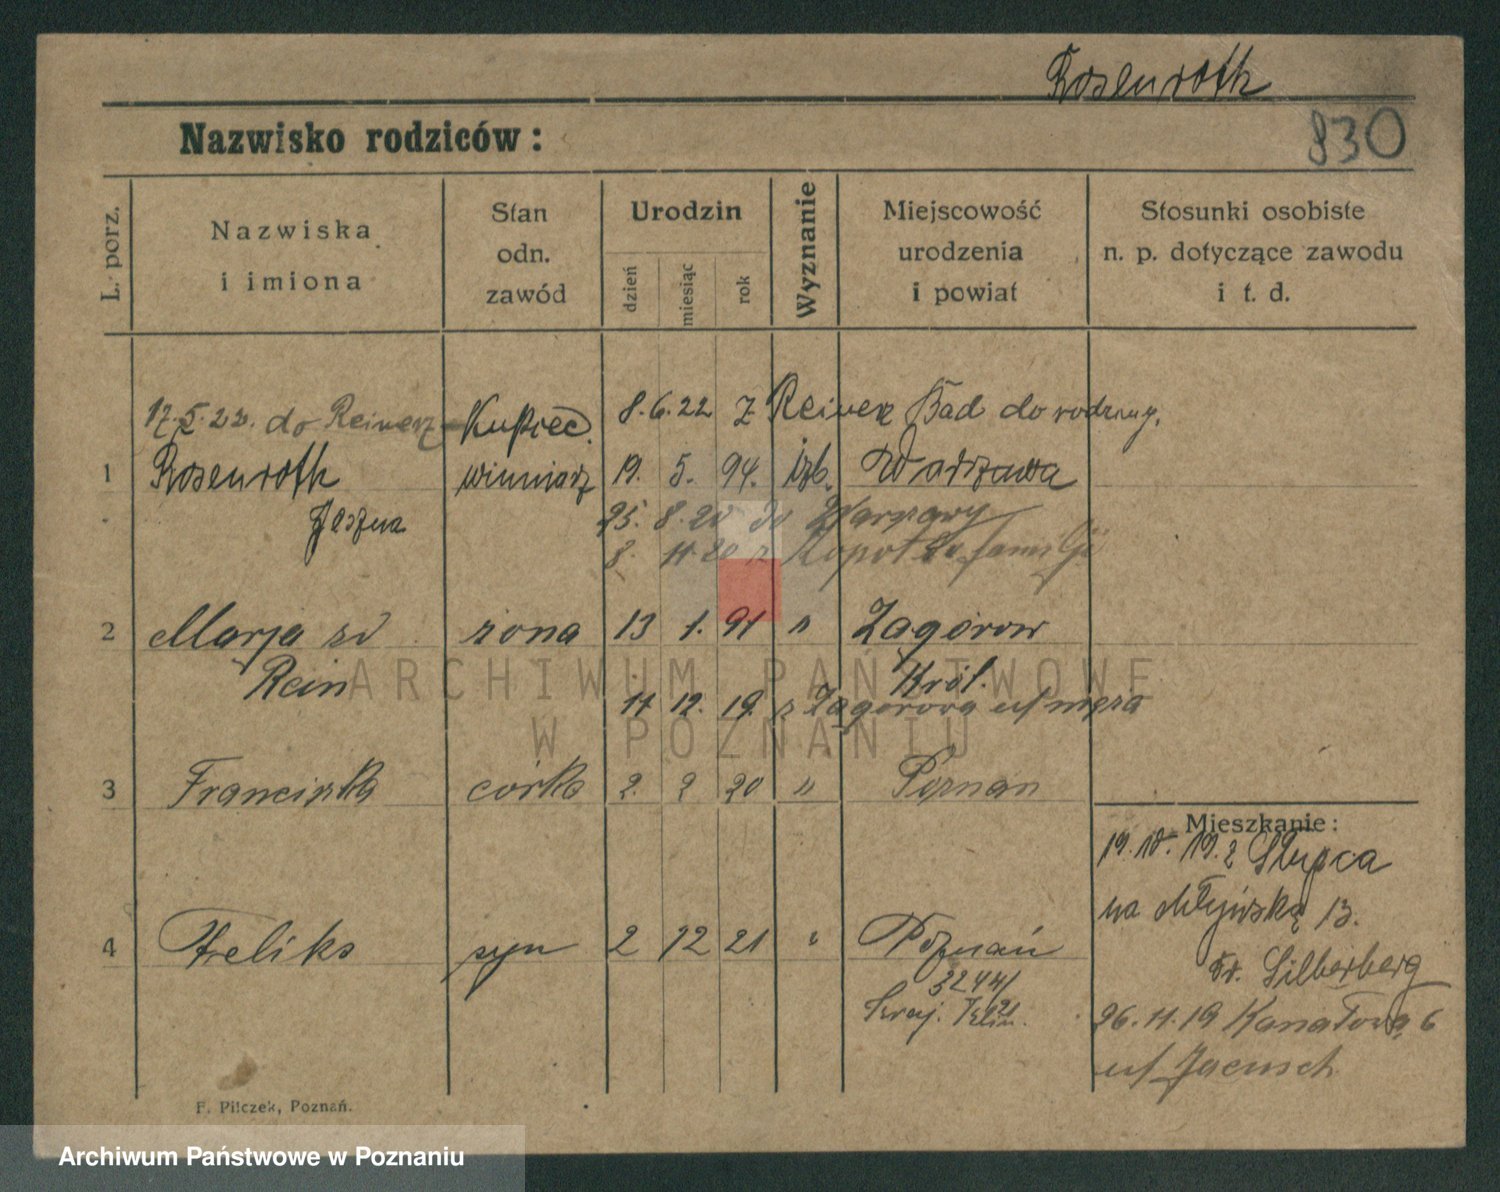 Rosenroth
830
Nazwisko rodziców:
L. porz.
Nazwiska
i imiona
Stan
odn.
zawód
Urodzin
dzień
miesiąc
rok
Wyznanie
Miejscowość
urodzenia
i powiat
Stosunki osobiste
n. p. dotyczące zawodu
i t. d.
17.5.22. do Reinerz Kupiec. 8.6.22 z Reinerz Bad do rodziny.
1 Rosenroth winniarz 19. 5. 94. izb. Warszawa
25. 8. 20 do Warszawy
8. 11 20 z Kopot
2 Marja żona 13 1. 91 " Zagórow
Rein Król.
11 12. 19. z Zagórowa u/ męża
3 Franciszka córka 2. 2 20 " Poznań
4 Feliks syn 2 12 21 " Poznań
Mieszkanie:
19. 10. 19. z Słupca
na Młyńską 13.
Silberberg
26. 11. 19 Kanałowa 6
u/ Jacusch
F. Pilczek, Poznań.
ARCHIWUM PAŃSTWOWE
W POZNANIU
Archiwum Państwowe w Poznaniu